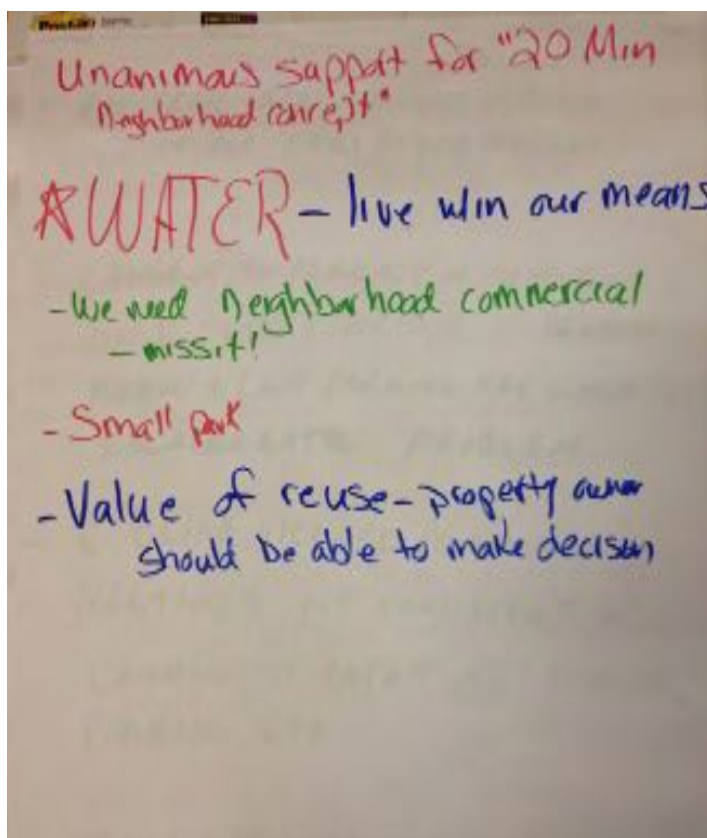 Unanimous support for "20 Min
Neighborhood concept"
☆ WATER - live w/in our means
- We need neighborhood commercial
- miss it!
- Small park
- Value of reuse - property owner
should be able to make decision